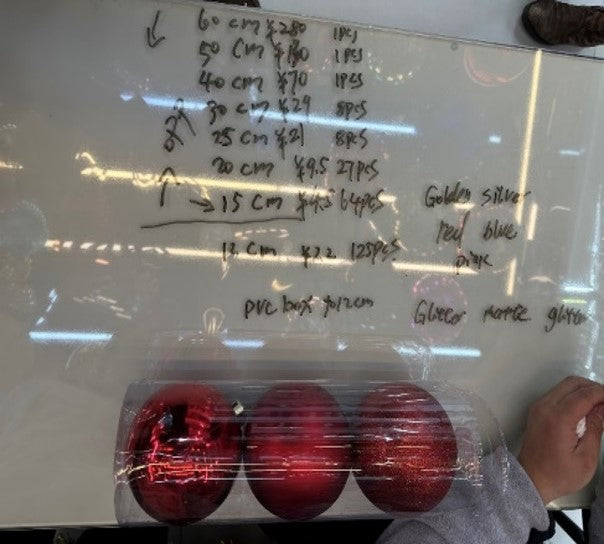 60 cm ¥280 1pcs
50 cm ¥130 1pcs
40 cm ¥70 1pcs
30 cm ¥29 8pcs
25 cm ¥21 8pcs
20 cm ¥9.5 27pcs
15 cm ¥4.5 64pcs
12 cm ¥2.2 125pcs
Golden silver
red blue
pink
PVC box 12cm
Glitter matte glitter